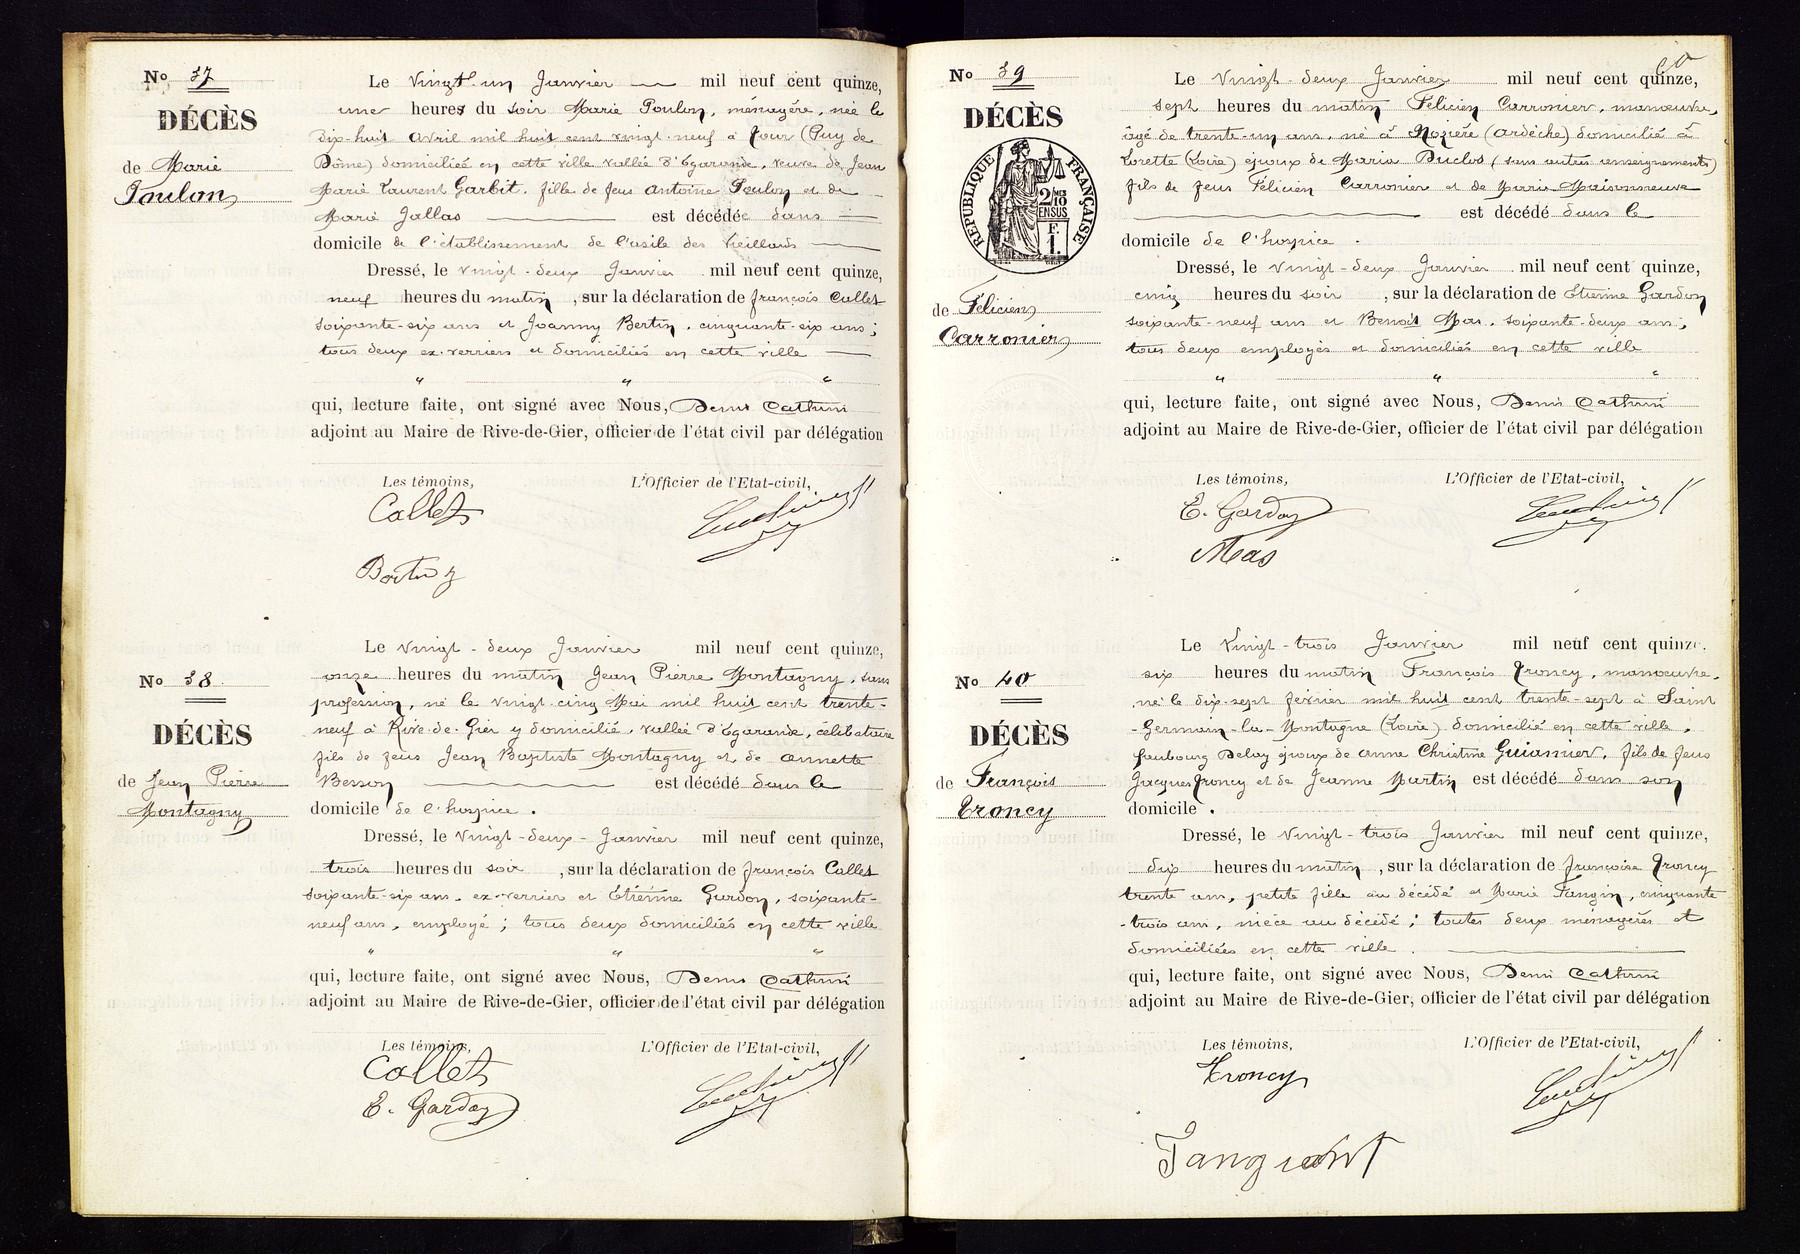 No 37
DÉCÈS
de Marie
Poulon
Le vingt-un Janvier mil neuf cent quinze,
une heures du soir Marie Poulon, ménagère, née le
dix-huit avril mil huit cent vingt-neuf à Jour (Puy de
Dôme) domiciliée en cette ville vallée d'Egarande, veuve de Jean
Marie Laurent Garbit, fille de feus Antoine Poulon et de
Marie Jallas est décédée dans
domicile de l'établissement de l'asile des Vieillards
Dressé, le vingt-deux Janvier mil neuf cent quinze,
neuf heures du matin, sur la déclaration de François Collet
soixante-six ans et Joanny Bertin, cinquante-six ans;
tous deux ex-verriers et domiciliés en cette ville
" " "
qui, lecture faite, ont signé avec Nous, Denis Cathini
adjoint au Maire de Rive-de-Gier, officier de l'état civil par délégation
Les témoins, L'Officier de l'Etat-civil,
Collet
No 38
DÉCÈS
de Jean Pierre
Montagny
Le vingt-deux Janvier mil neuf cent quinze,
onze heures du matin Jean Pierre Montagny, sans
profession, né le vingt-cinq Mai mil huit cent trente-
neuf à Rive-de-Gier y domicilié, vallée d'Egarande, célibataire
fils de feus Jean Baptiste Montagny et de Annette
Besson est décédé dans le
domicile de l'hospice.
Dressé, le vingt-deux-Janvier mil neuf cent quinze,
trois heures du soir, sur la déclaration de François Collet
soixante-six ans, ex-verrier et Etienne Gardon, soixante-
neuf ans, employé; tous deux domiciliés en cette ville
" " "
qui, lecture faite, ont signé avec Nous, Denis Cathini
adjoint au Maire de Rive-de-Gier, officier de l'état civil par délégation
Les témoins, L'Officier de l'Etat-civil,
Collet
E. Gardon
No 39
DÉCÈS
RÉPUBLIQUE FRANÇAISE
2/10
EN SUS
F.
1.
de Félicien
Carronier
Le vingt-deux Janvier mil neuf cent quinze,
sept heures du matin Félicien Carronier, manœuvre,
âgé de trente-un ans, né à Nozière (Ardèche) domicilié à
Lorette (Loire) époux de Maria Duclos (sans autres renseignements)
fils de feus Félicien Carronier et de Marie Maisonneuve
est décédé dans le
domicile de l'hospice.
Dressé, le vingt-deux Janvier mil neuf cent quinze,
cinq heures du soir, sur la déclaration de Etienne Gardon
soixante-neuf ans et Benoit Mas, soixante-deux ans;
tous deux employés et domiciliés en cette ville
" " "
qui, lecture faite, ont signé avec Nous, Denis Cathini
adjoint au Maire de Rive-de-Gier, officier de l'état civil par délégation
Les témoins, L'Officier de l'Etat-civil,
E. Gardon
Mas
No 40
DÉCÈS
de François
Troncy
Le vingt-trois Janvier mil neuf cent quinze,
six heures du matin François Troncy, manœuvre,
né le dix-sept février mil huit cent trente-sept à Saint
-Germain-la-Montagne (Loire) domicilié en cette ville,
faubourg Delay époux de Anne Christine Guiannier, fils de feus
Jacques Troncy et de Jeanne Martin est décédé dans son
domicile.
Dressé, le vingt-trois Janvier mil neuf cent quinze,
dix heures du matin, sur la déclaration de Françoise Troncy
trente ans, petite fille au décédé et Marie Tangin, cinquante
-trois ans, nièce au décédé; toutes deux ménagères et
domiciliées en cette ville.
qui, lecture faite, ont signé avec Nous, Denis Cathini
adjoint au Maire de Rive-de-Gier, officier de l'état civil par délégation
Les témoins, L'Officier de l'Etat-civil,
Troncy